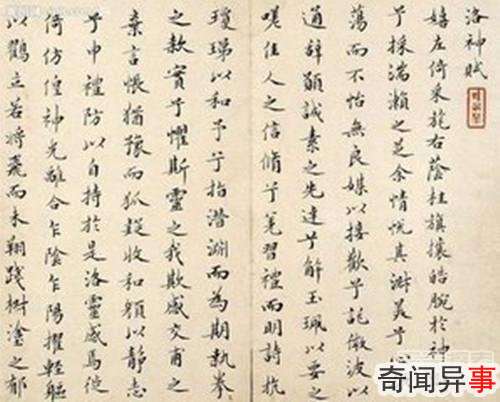 洛神賦
嬉左倚采旄右蔭桂旗攘皓腕於神
兮採湍瀨之芝余情悅其淑美兮
蕩而不怡無良媒以接歡兮託微波以
通辭願誠素之先達兮解玉珮以要之
嗟佳人之信脩兮羌習禮而明詩抗
瓊珶以和予兮指潛淵而為期執拳
之款實兮懼斯靈之我欺感交甫之
棄言悵猶豫而狐疑收和顏以靜志
兮申禮防以自持於是洛靈感焉徙
倚仿偟神光離合乍陰乍陽擢輕軀
以鶴立若將飛而未翔踐椒塗之郁
奇闻异事